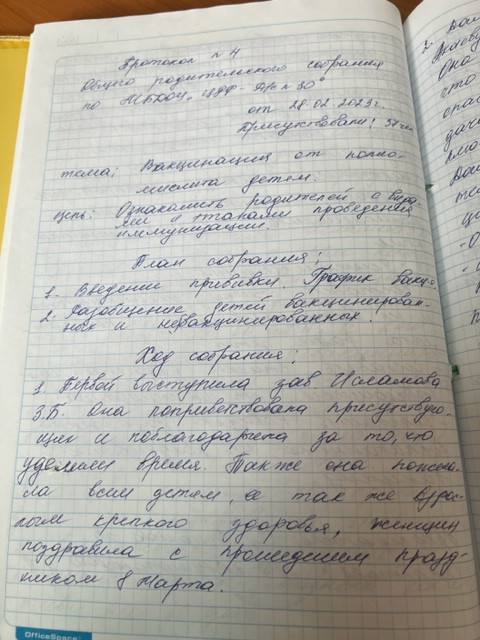 Протокол № 4
Общего родительского собрания
по МБДОУ "ЦРР - Д/с № 30"
от 28.02.2023г.
Присутствовали: 37 чел
тема: Вакцинация от полио-
миелита детей.
цель: Ознакомить родителей с вида
ми и этапами проведения
иммунизации.
План собрания:
1. Введение прививки. График вакц.
2. Разобщение детей вакцинирован-
ных и невакцинированных
Ход собрания:
1. Первой выступила зав Исламова
З.Б. Она поприветствовала присутствую-
щих и поблагодарила за то, что
уделили время. Также она пожела-
ла всем детям, а так же взрос-
лым крепкого здоровья, женщин
поздравила с прошедшим празд-
ником 8 Марта.
2.
Она
что
OfficeSpace